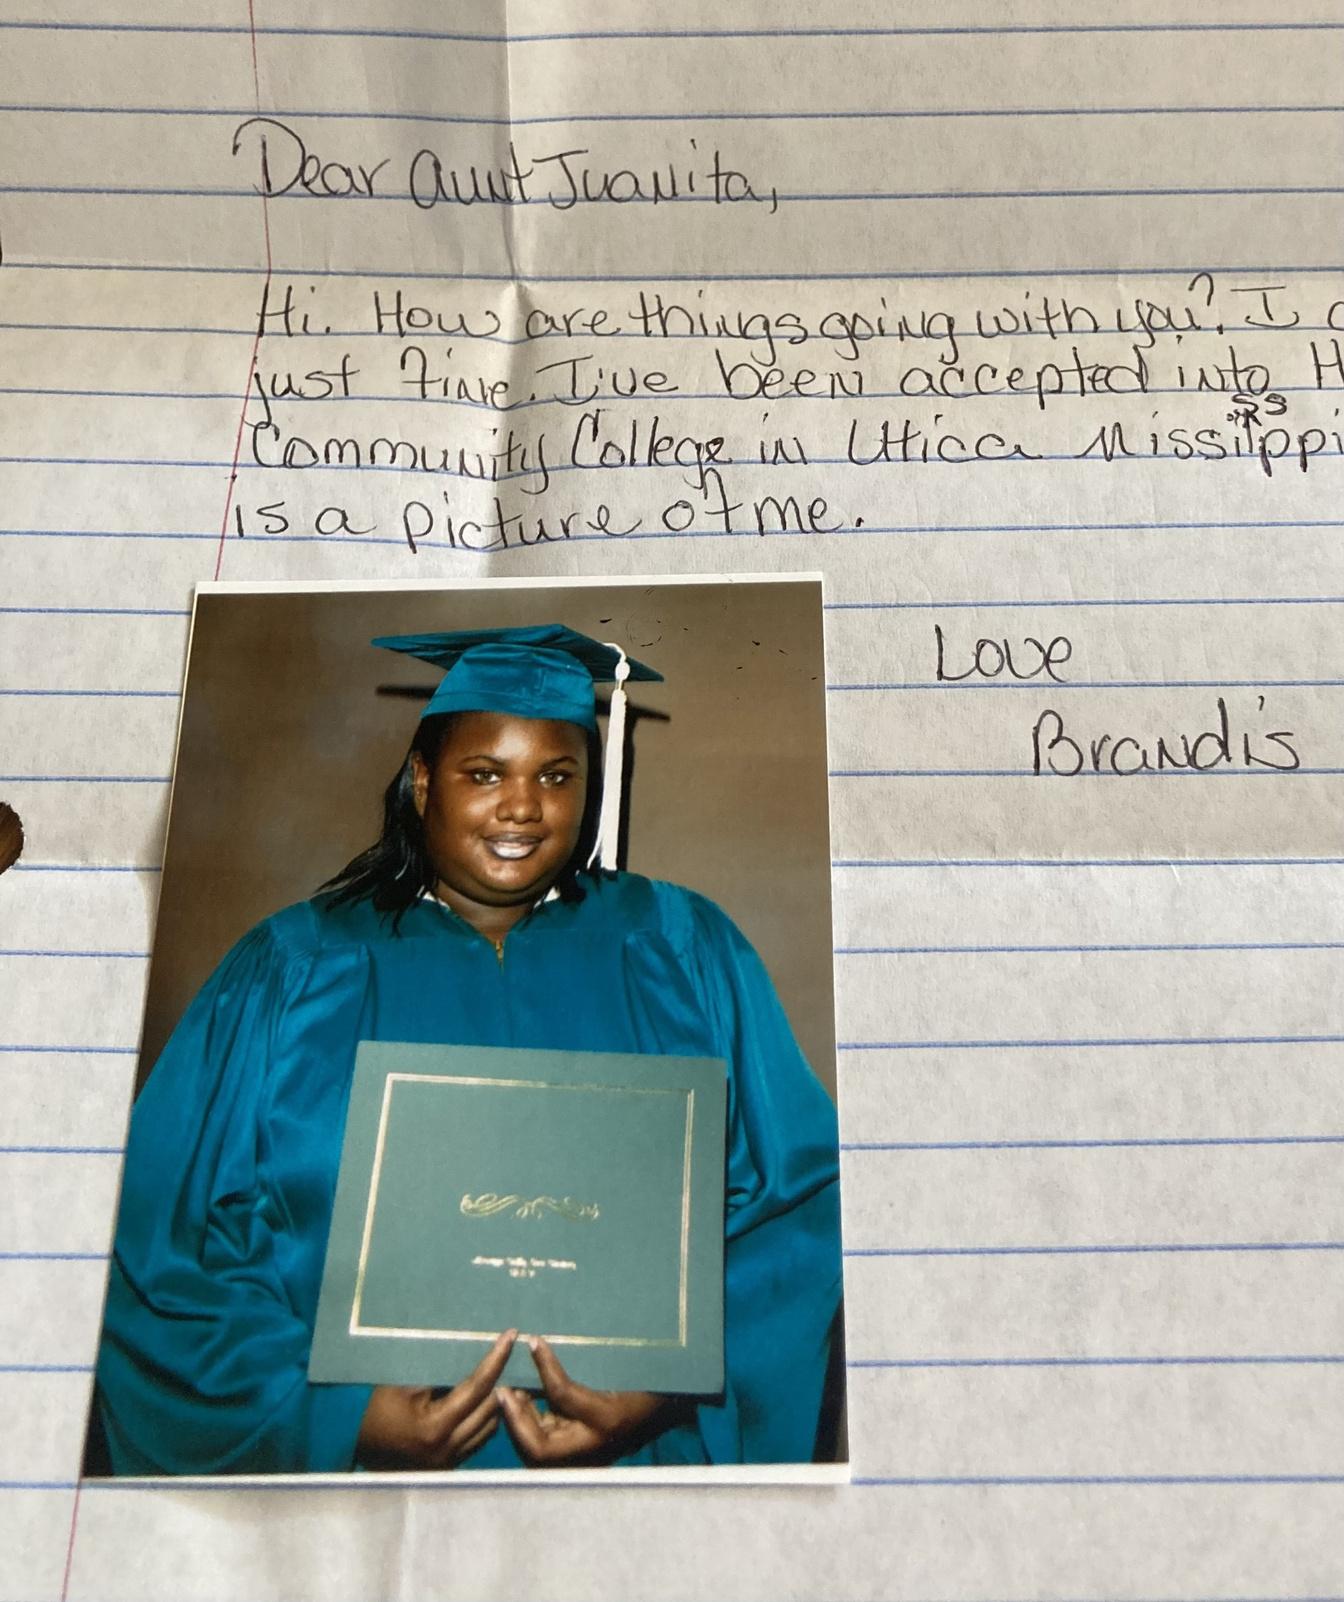 Dear Aunt Juanita,
Hi. How are things going with you? I
just fine. I've been accepted into H
Community College in Utica Missippi
ss
is a picture of me.
Love
Brandis